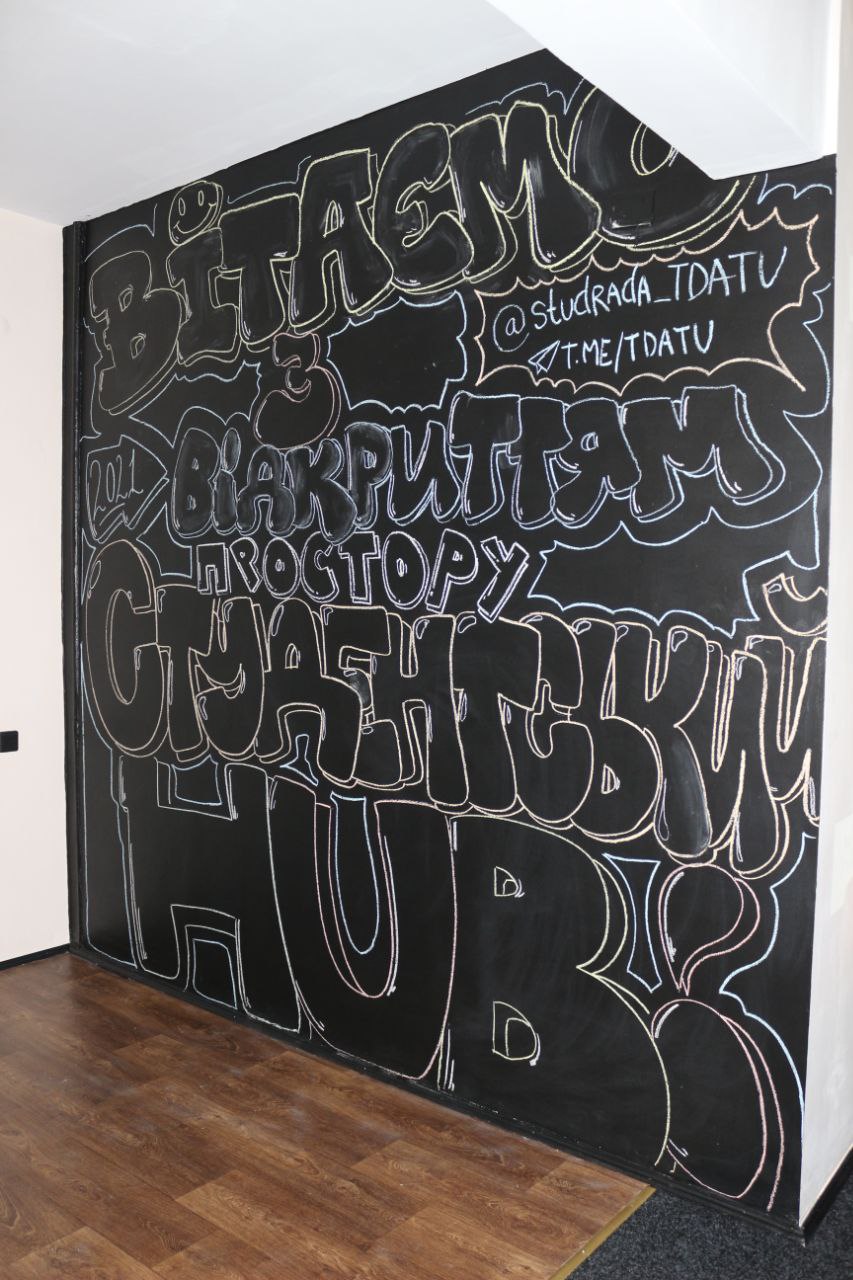 ВІТАЄМО
@studrada_TDATU
T.ME/TDATU
З
2021
ВІДКРИТТЯМ
ПРОСТОРУ
СТУДЕНТСЬКИЙ
HUB!